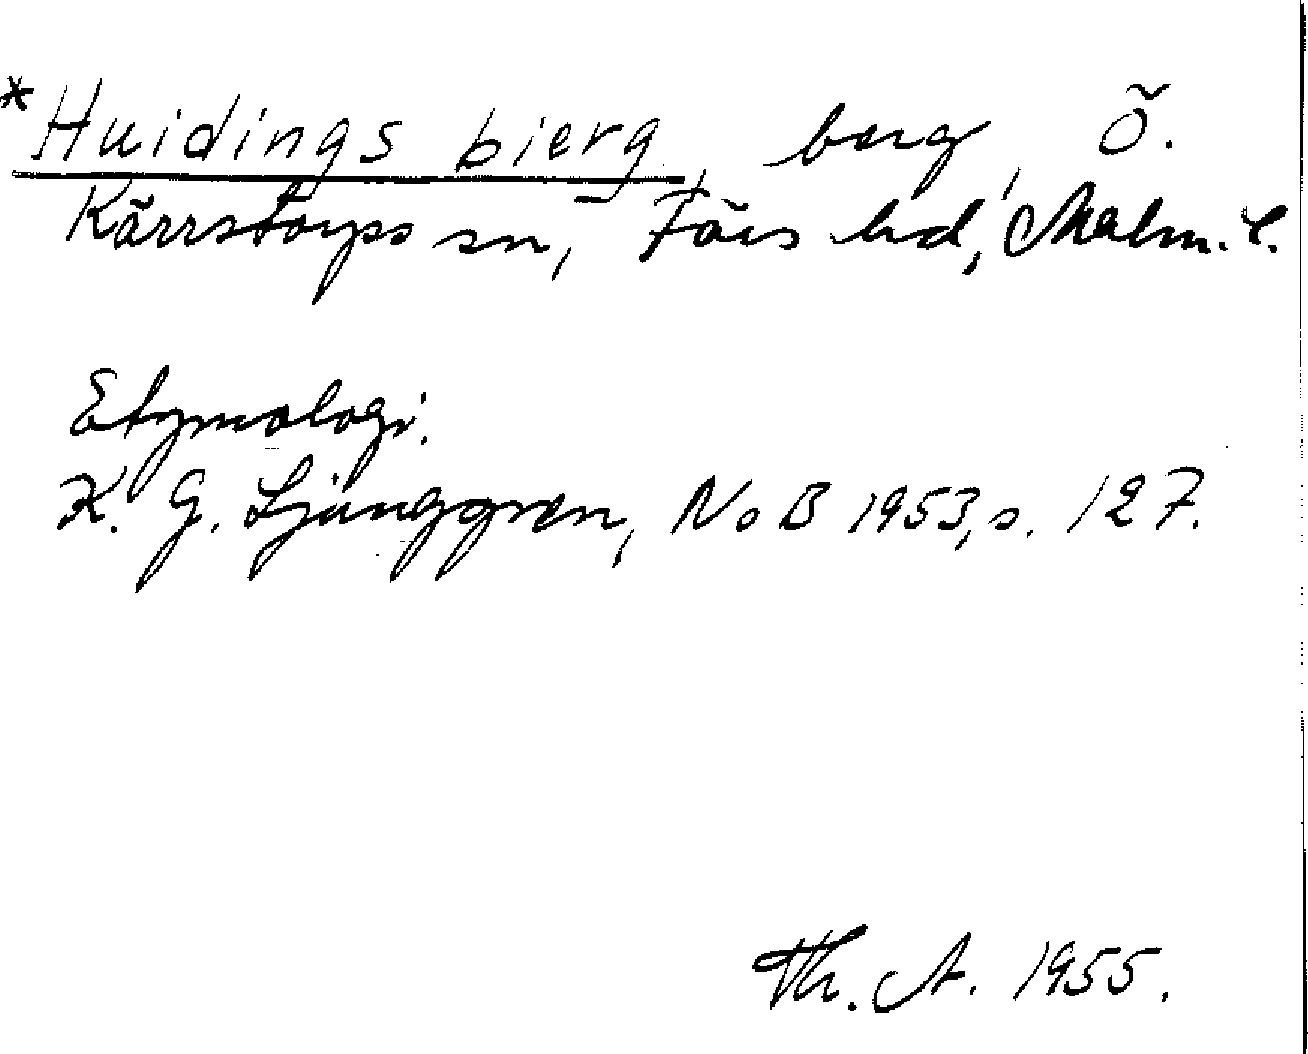 *Huidings bierg, berg, Ö.
Kärrstorps sn, Färs hd, Malm. l.
Etymologi.
K. G. Ljunggren, NoB 1953, s. 127.
Th. A. 1955.